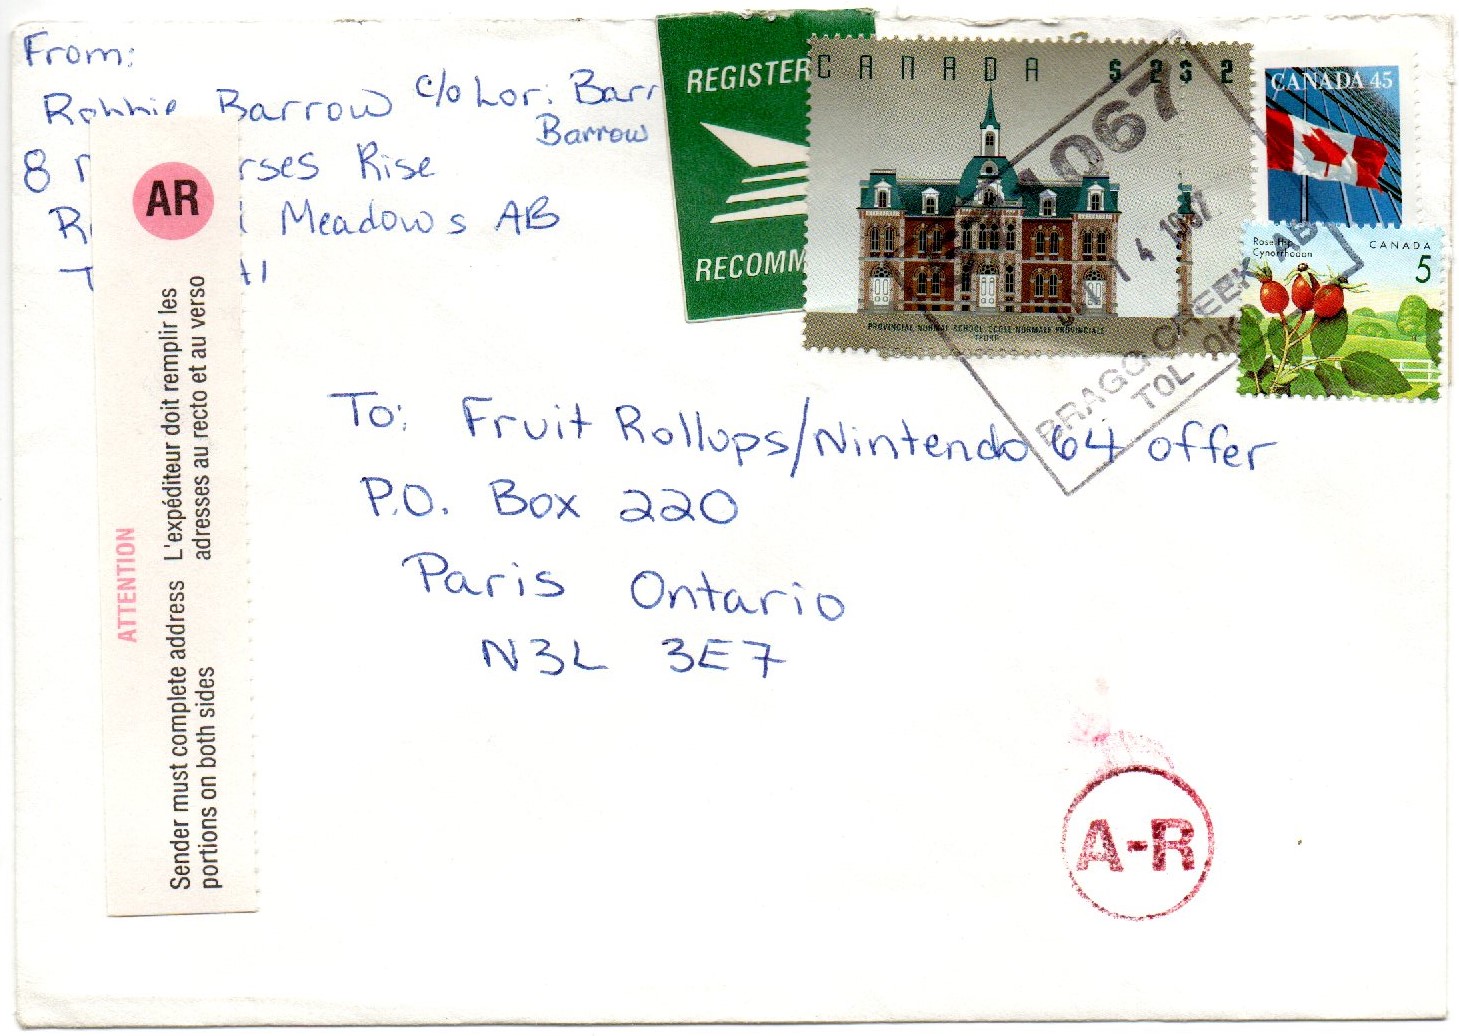 From:
Robbie Barrow c/o Lori Barr
Barrow
8 rses Rise
Meadows AB
AR
ATTENTION
Sender must complete address
portions on both sides
L'expéditeur doit remplir les
adresses au recto et au verso
REGISTER
RECOMM
CANADA $2$2
PROVINCIAL NORMAL SCHOOL ECOLE NORMALE PROVINCIALE
TRURO
CANADA 45
Rose Hip
Cynorrhodon
CANADA
5
1067
14 1997
BRAGG CREEK AB
T0L 0K
To: Fruit Rollups/Nintendo 64 offer
P.O. Box 220
Paris Ontario
N3L 3E7
A-R